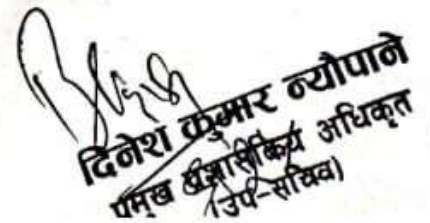 दिनेश कुमार न्यौपाने
प्रमुख प्रशासकिय अधिकृत
(उप-सचिव)